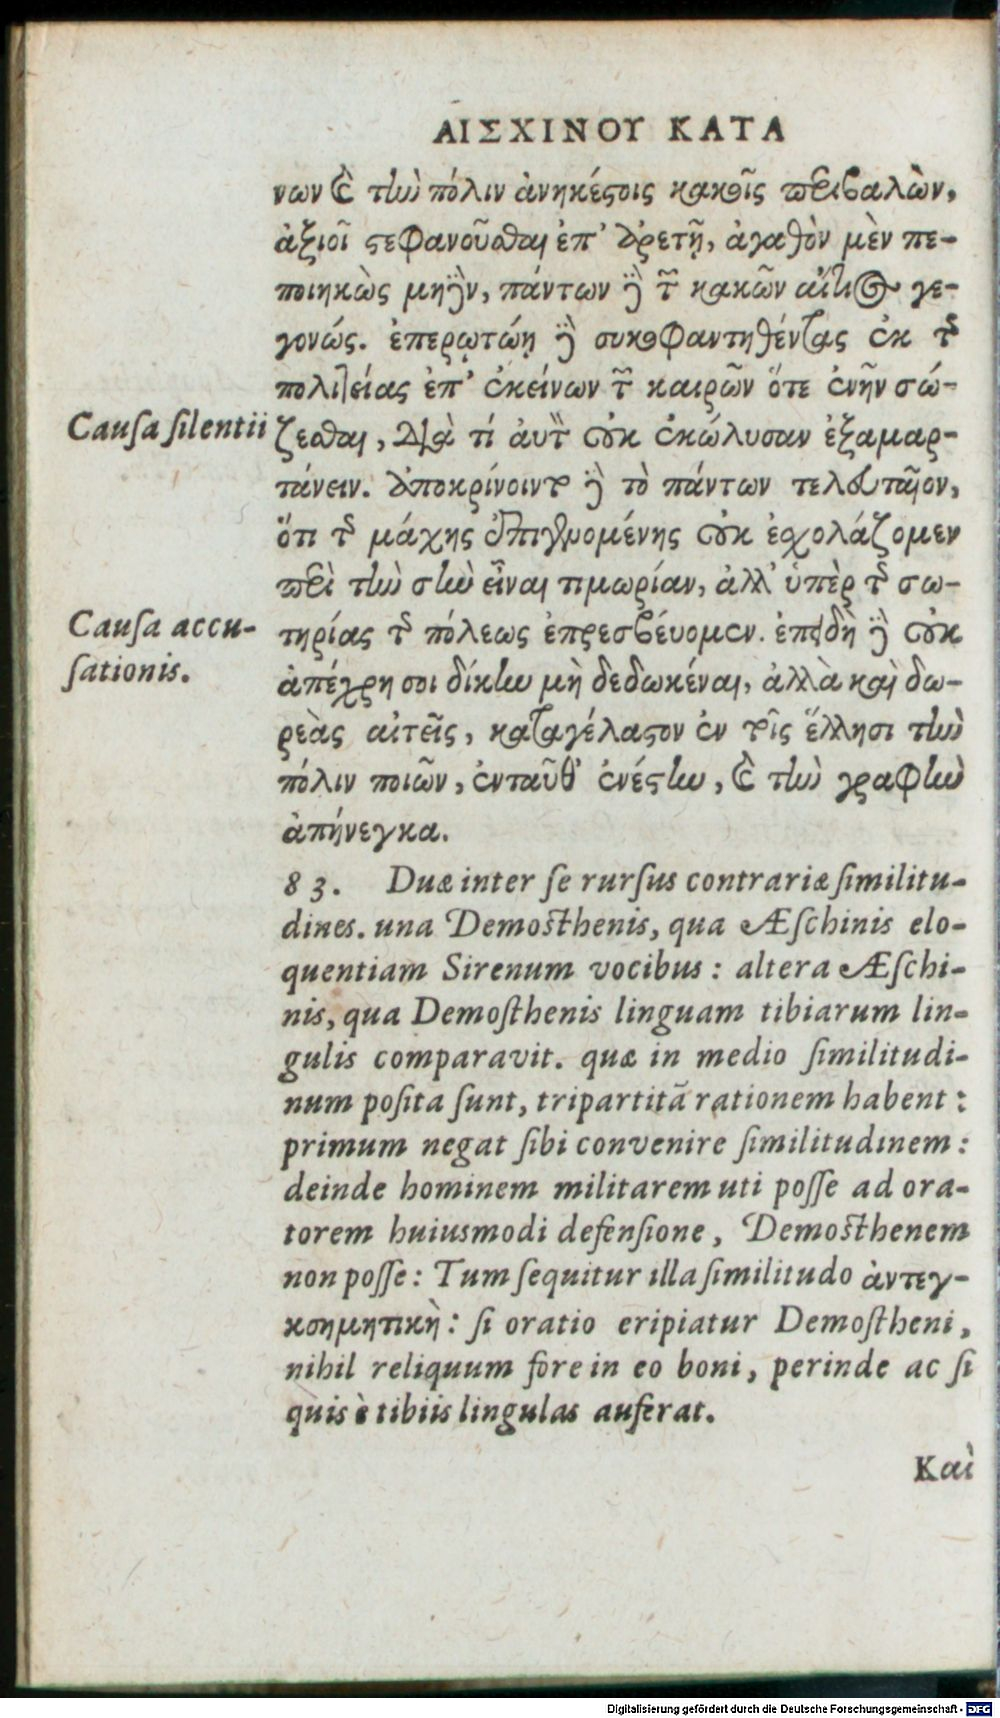 ΑΙΣΧΙΝΟΥ ΚΑΤΑ
νων καὶ τὴν πόλιν ἀνηκέστοις κακοῖς περιβαλὼν,
ἀξιοῖ στεφανοῦσθαι ἐπ' ἀρετῇ, ἀγαθὸν μὲν πε-
ποιηκὼς μηδὲν, πάντων δὲ τῶν κακῶν αἴτιος γε-
γονώς. ἐπερωτώῃ δὲ συκοφαντηθέντας ἐκ τῆς
πολιτείας ἐπ' ἐκείνων τῶν καιρῶν ὅτε ἐνῆν σώ-
Causa silentii
ζεσθαι, διὰ τί αὐτὸν οὐκ ἐκώλυσαν ἐξαμαρ-
τάνειν. ἀποκρίνοιντο δὲ τὸ πάντων τελευταῖον,
ὅτι τῆς μάχης ἐπιγενομένης οὐκ ἐσχολάζομεν
περὶ τὴν σὴν εἶναι τιμωρίαν, ἀλλ' ὑπὲρ τῆς σω-
Causa accu-
sationis.
τηρίας τῆς πόλεως ἐπρεσβεύομεν. ἐπειδὴ δὲ οὐκ
ἀπέχρη σοι δίκην μὴ δεδωκέναι, ἀλλὰ καὶ δω-
ρεὰς αἰτεῖς, καταγέλαστον ἐν τοῖς ἕλλησι τὴν
πόλιν ποιῶν, ἐνταῦθ' ἐνέστην, καὶ τὴν γραφὴν
ἀπήνεγκα.
83. Duæ inter se rursus contrariæ similitu-
dines. una Demosthenis, qua Æschinis elo-
quentiam Sirenum vocibus: altera Æschi-
nis, qua Demosthenis linguam tibiarum lin-
gulis comparavit. quæ in medio similitudi-
num posita sunt, tripartitā rationem habent:
primum negat sibi convenire similitudinem:
deinde hominem militarem uti posse ad ora-
torem huiusmodi defensione, Demosthenem
non posse: Tum sequitur illa similitudo ἀντεγ-
κοημητικὴ: si oratio eripiatur Demostheni,
nihil reliquum fore in eo boni, perinde ac si
quis è tibiis lingulas auferat.
Καὶ
Digitalisierung gefördert durch die Deutsche Forschungsgemeinschaft - DFG